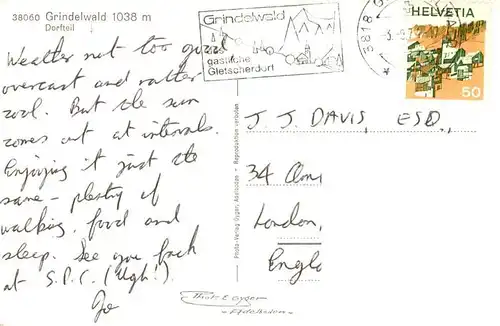 38060 Grindelwald 1038 m
Dorfteil
Weather not too good
overcast and rather
cool. But the sun
comes out at intervals.
Enjoying it just the
same - plenty of
walking, food and
sleep. See you back
at S.P.C. (Ugh!).
Joe
Grindelwald
gastliche
Gletscherdorf
3818
HELVETIA
50
J. J. DAVIS, ESQ.,
34
London,
Photo-Verlag Gyger, Adelboden - Reproduktion verboten
Photo E Gyger
- Adelboden -